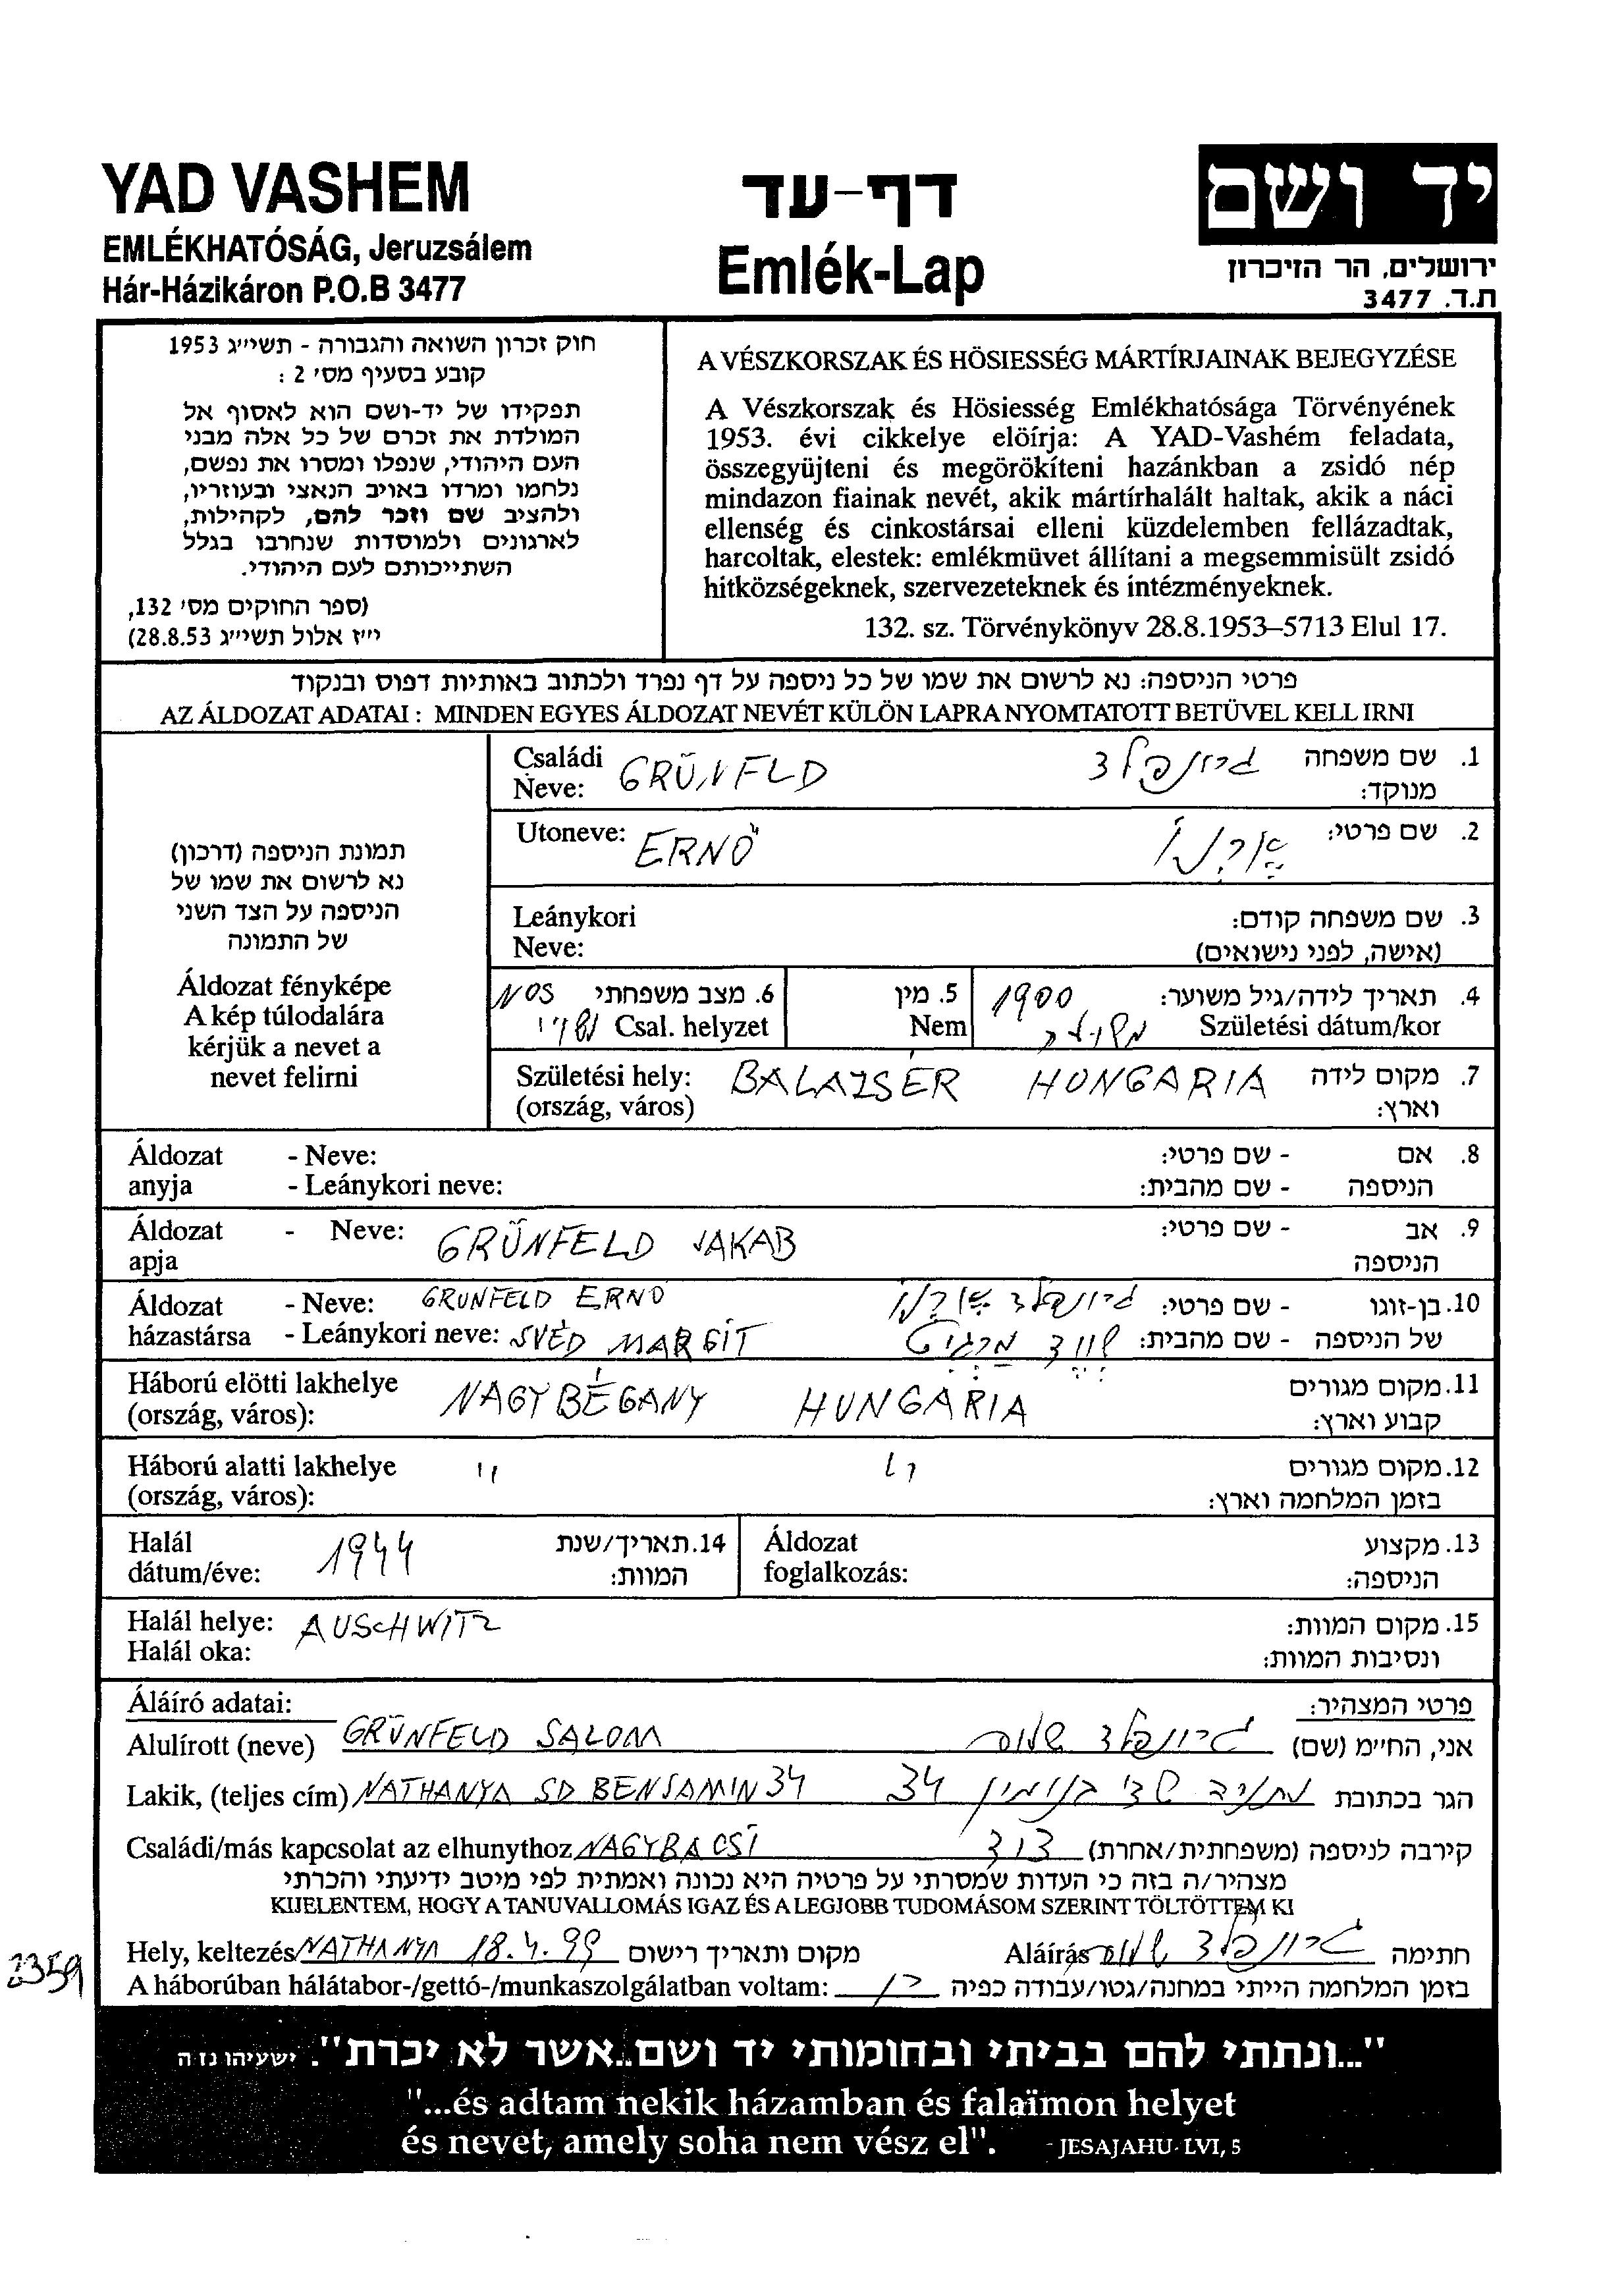 YAD VASHEM
EMLÉKHATÓSÁG, Jeruzsálem
Hár-Házikáron P.O.B 3477
דף-עד
Emlék-Lap
יד ושם
ירושלים, הר הזיכרון
ת.ד. 3477
חוק זכרון השואה והגבורה - תשי״ג 1953
קובע בסעיף מס׳ 2 :
תפקידו של יד-ושם הוא לאסוף אל
המולדת את זכרם של כל אלה מבני
העם היהודי, שנפלו ומסרו את נפשם,
נלחמו ומרדו באויב הנאצי ובעוזריו,
ולהציב שם וזכר להם, לקהילות,
לארגונים ולמוסדות שנחרבו בגלל
השתייכותם לעם היהודי.
(ספר החוקים מס׳ 132,
י״ז אלול תשי״ג 28.8.53)
A VÉSZKORSZAK ÉS HÖSIESSÉG MÁRTÍRJAINAK BEJEGYZÉSE
A Vészkorszak és Hösiesség Emlékhatósága Törvényének
1953. évi cikkelye elöírja: A YAD-Vashém feladata,
összegyüjteni és megörökíteni hazánkban a zsidó nép
mindazon fiainak nevét, akik mártírhalált haltak, akik a náci
ellenség és cinkostársai elleni küzdelemben fellázadtak,
harcoltak, elestek: emlékmüvet állítani a megsemmisült zsidó
hitközségeknek, szervezeteknek és intézményeknek.
132. sz. Törvénykönyv 28.8.1953–5713 Elul 17.
פרטי הניספה: נא לרשום את שמו של כל ניספה על דף נפרד ולכתוב באותיות דפוס ובנקוד
AZ ÁLDOZAT ADATAI : MINDEN EGYES ÁLDOZAT NEVÉT KÜLÖN LAPRA NYOMTATOTT BETÜVEL KELL IRNI
תמונת הניספה (דרכון)
נא לרשום את שמו של
הניספה על הצד השני
של התמונה
Áldozat fényképe
A kép túlodalára
kérjük a nevet a
nevet felirni
Családi GRÜNFLD גרונפלד 1. שם משפחה
Neve: מנוקד:
Utoneve: ERNÖ ארנו 2. שם פרטי:
Leánykori 3. שם משפחה קודם:
Neve: (אישה, לפני נישואים)
NOS 6. מצב משפחתי 5. מין 1900 4. תאריך לידה/גיל משוער:
נשוי Csal. helyzet Nem Születési dátum/kor
Születési hely: BALAZSÉR HUNGARIA 7. מקום לידה
(ország, város) וארץ:
Áldozat - Neve: - שם פרטי: 8. אם
anyja - Leánykori neve: - שם מהבית: הניספה
Áldozat - Neve: GRÜNFELD JAKAB - שם פרטי: 9. אב
apja הניספה
Áldozat - Neve: GRUNFELD ERNÖ גרונפלד ארנו - שם פרטי: 10. בן-זוגו
házastársa - Leánykori neve: SVÉD MARGIT שווד מרגיט - שם מהבית: של הניספה
Háború elötti lakhelye NAGYBÉGANY HUNGARIA 11. מקום מגורים
(ország, város): קבוע וארץ:
Háború alatti lakhelye " " 12. מקום מגורים
(ország, város): בזמן המלחמה וארץ:
Halál 1944 14. תאריך/שנת Áldozat 13. מקצוע
dátum/éve: המוות: foglalkozás: הניספה:
Halál helye: AUSCHWITZ 15. מקום המוות:
Halál oka: ונסיבות המוות:
Áláíró adatai: פרטי המצהיר:
Alulírott (neve) GRÜNFELD SALOM גרונפלד שלום אני, החי״מ (שם)
Lakik, (teljes cím) NATHANYA SD BENJAMIN 34 נתניה שד׳ בנימין 34 הגר בכתובת
Családi/más kapcsolat az elhunythoz NAGYBACSI דוד קירבה לניספה (משפחתית/אחרת)
מצהיר/ה בזה כי העדות שמסרתי על פרטיה היא נכונה ואמתית לפי מיטב ידיעתי והכרתי
KIJELENTEM, HOGY A TANUVALLOMÁS IGAZ ÉS A LEGJOBB TUDOMÁSOM SZERINT TÖLTÖTTEM KI
Hely, keltezés NATHANYA 18.4.99 מקום ותאריך רישום Aláírás גרונפלד שלום חתימה
A háborúban hálátabor-/gettó-/munkaszolgálatban voltam: כן בזמן המלחמה הייתי במחנה/גטו/עבודה כפיה
2359
"...ונתתי להם בביתי ובחומותי יד ושם..אשר לא יכרת". ישעיהו נז ה
"...és adtam nekik házamban és falaïmon helyet
és nevet, amely soha nem vész el". - JESAJAHU- LVI, 5